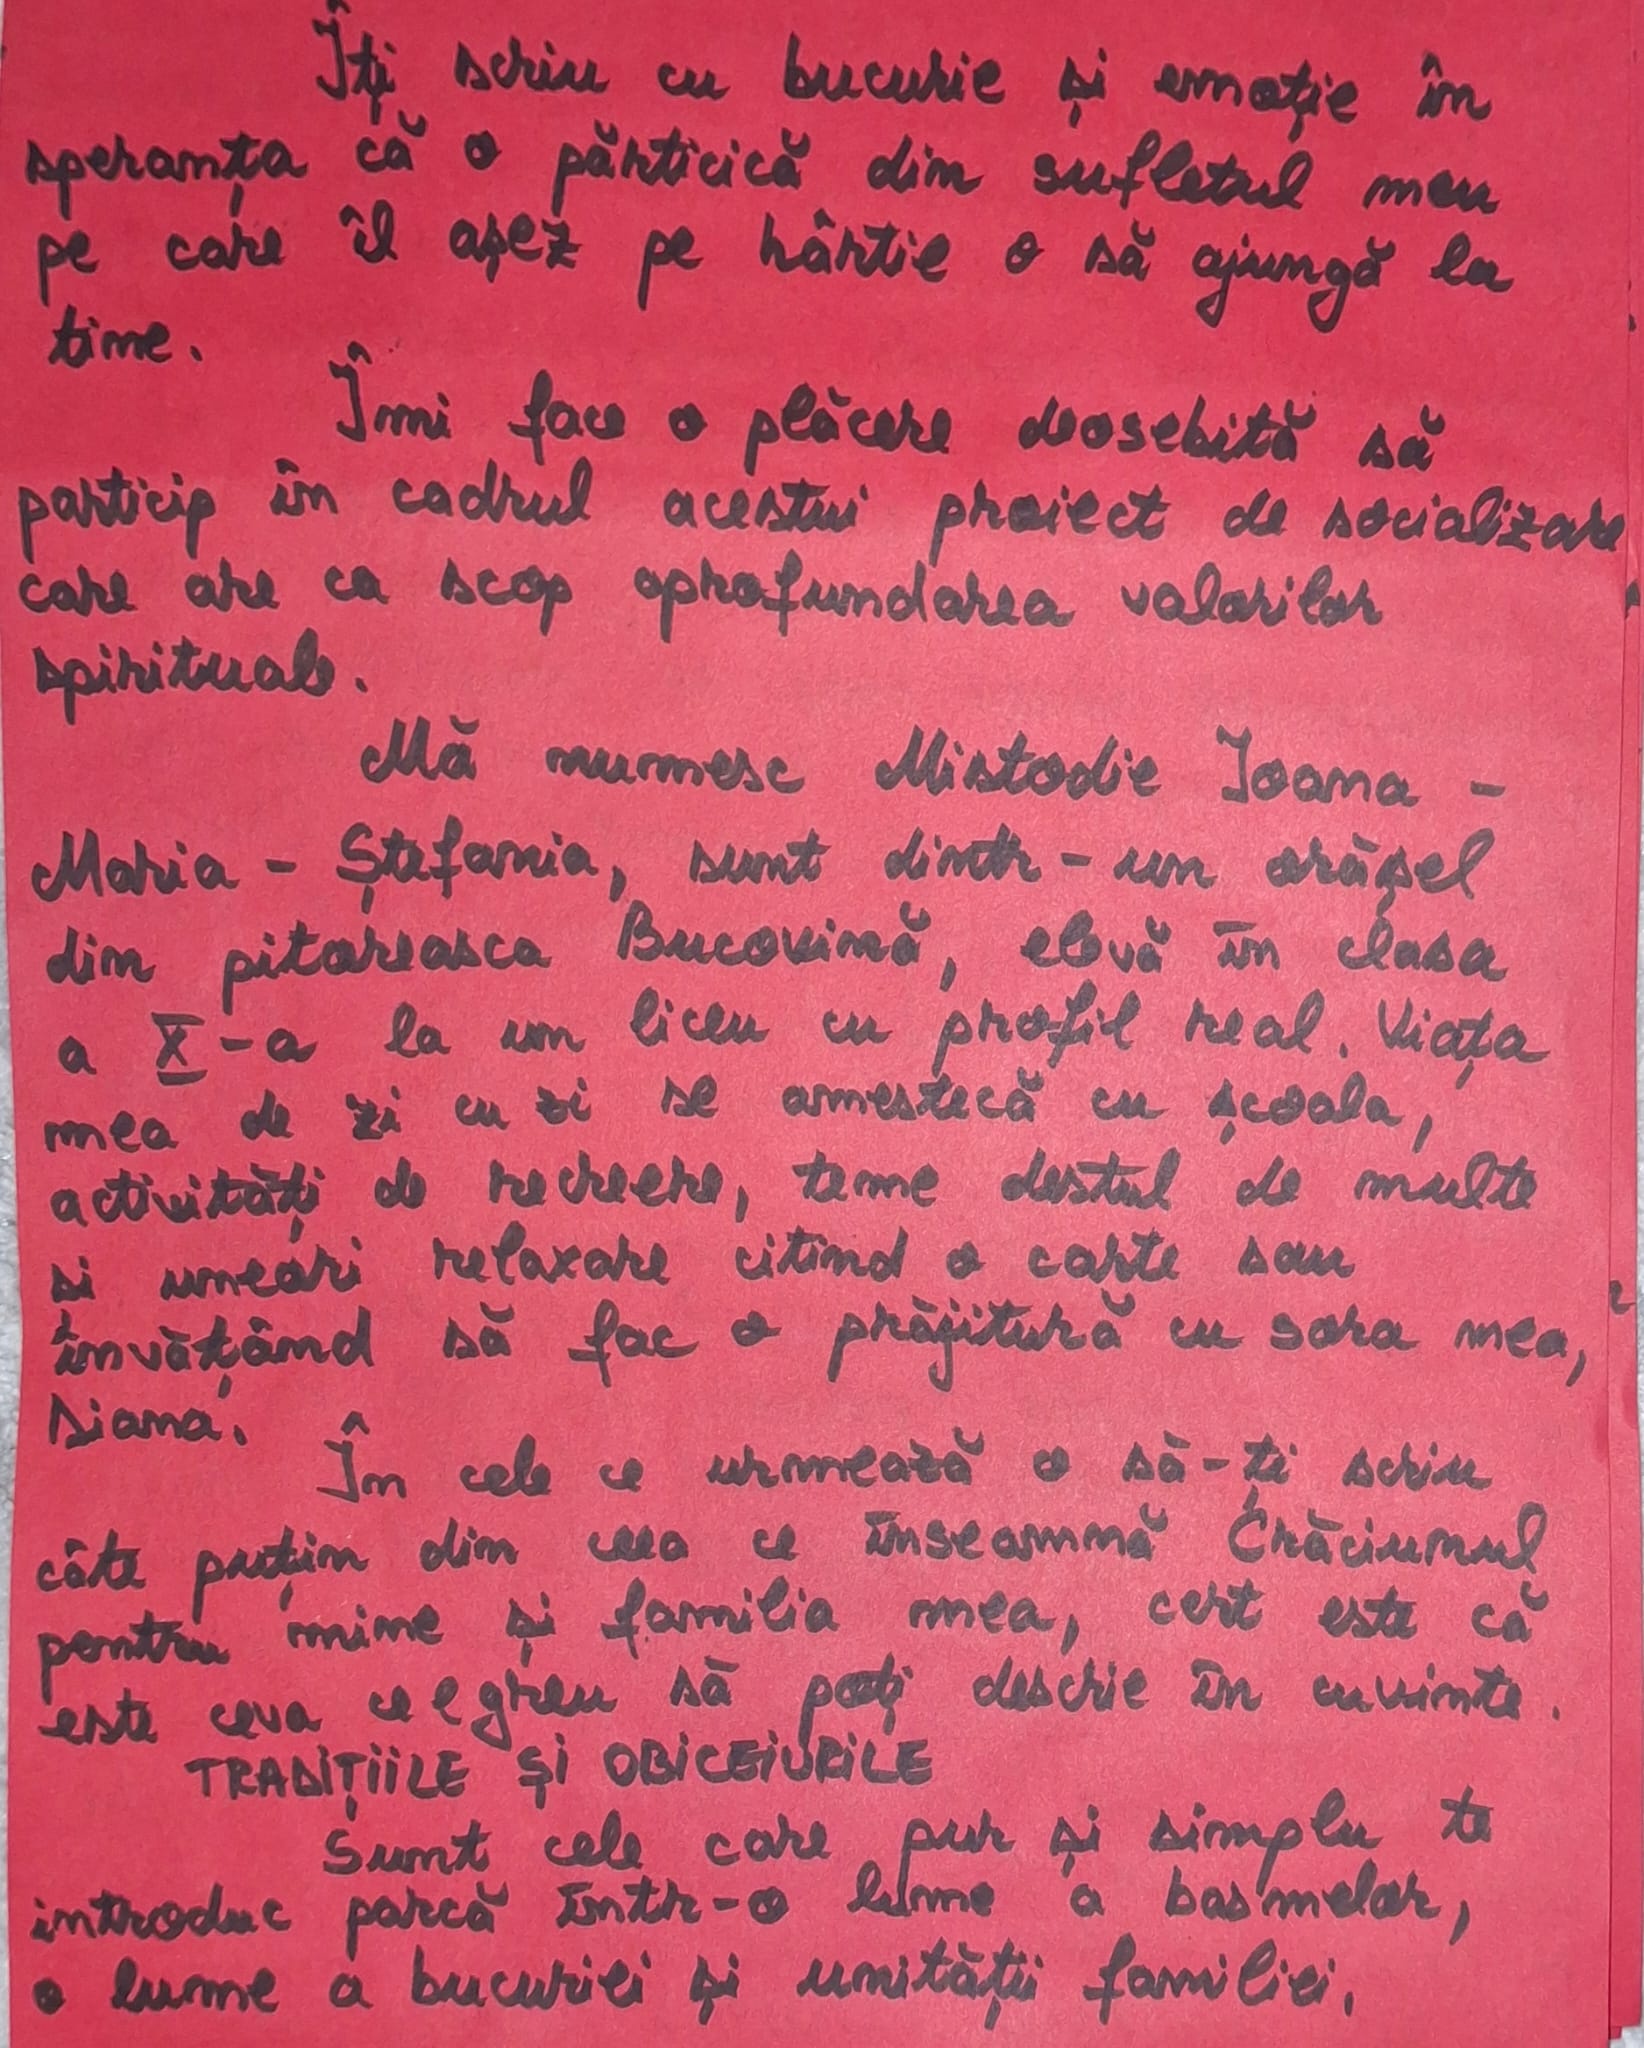 Îți scriu cu bucurie și emoție în
speranța că o părticică din sufletul meu
pe care îl așez pe hârtie o să ajungă la
tine.
Îmi face o plăcere deosebită să
particip în cadrul acestui proiect de socializare
care are ca scop aprofundarea valorilor
spirituale.
Mă numesc Mistodie Ioana -
Maria - Ștefania, sunt dintr-un orășel
din pitoreasca Bucovină, elevă în clasa
a X-a la un liceu cu profil real. Viața
mea de zi cu zi se amestecă cu școala,
activități de recreere, teme destul de multe
și uneori relaxare citind o carte sau
învățând să fac o prăjitură cu sora mea,
Diana.
În cele ce urmează o să-ți scriu
câte puțin din ceea ce înseamnă Crăciunul
pentru mine și familia mea, cert este că
este ceva ce e greu să poți descrie în cuvinte.
TRADIȚIILE ȘI OBICEIURILE
Sunt cele care pur și simplu te
introduc parcă într-o lume a basmelor,
o lume a bucuriei și unității familiei.